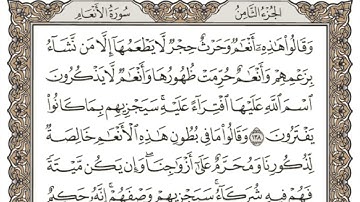 الجزء الثامن
سورة الأنعام
وَقَالُوا۟ هَٰذِهِۦٓ أَنْعَٰمٌ وَحَرْثٌ حِجْرٌ لَّا يَطْعَمُهَآ إِلَّا مَن نَّشَآءُ
بِزَعْمِهِمْ وَأَنْعَٰمٌ حُرِّمَتْ ظُهُورُهَا وَأَنْعَٰمٌ لَّا يَذْكُرُونَ
ٱسْمَ ٱللَّهِ عَلَيْهَا ٱفْتِرَآءً عَلَيْهِ ۚ سَيَجْزِيهِم بِمَا كَانُوا۟
يَفْتَرُونَ ١٣٨ وَقَالُوا۟ مَا فِى بُطُونِ هَٰذِهِ ٱلْأَنْعَٰمِ خَالِصَةٌ
لِّذُكُورِنَا وَمُحَرَّمٌ عَلَىٰٓ أَزْوَٰجِنَا ۖ وَإِن يَكُن مَّيْتَةً
فَهُمْ فِيهِ شُرَكَآءُ ۚ سَيَجْزِيهِمْ وَصْفَهُمْ ۚ إِنَّهُۥ حَكِيمٌ